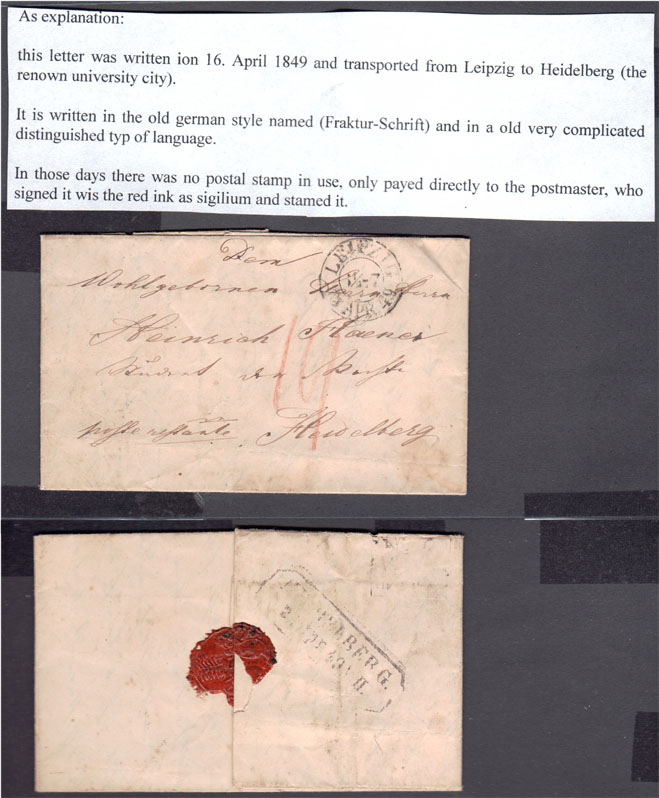 As explanation:
this letter was written ion 16. April 1849 and transported from Leipzig to Heidelberg (the
renown university city).
It is written in the old german style named (Fraktur-Schrift) and in a old very complicated
distinguished typ of language.
In those days there was no postal stamp in use, only payed directly to the postmaster, who
signed it wis the red ink as sigilium and stamed it.
Dem
Wohlgebornen Herrn Herrn
Heinrich
Student der Rechte
poste restante Heidelberg
LEIPZIG
APR
BERG.
II.